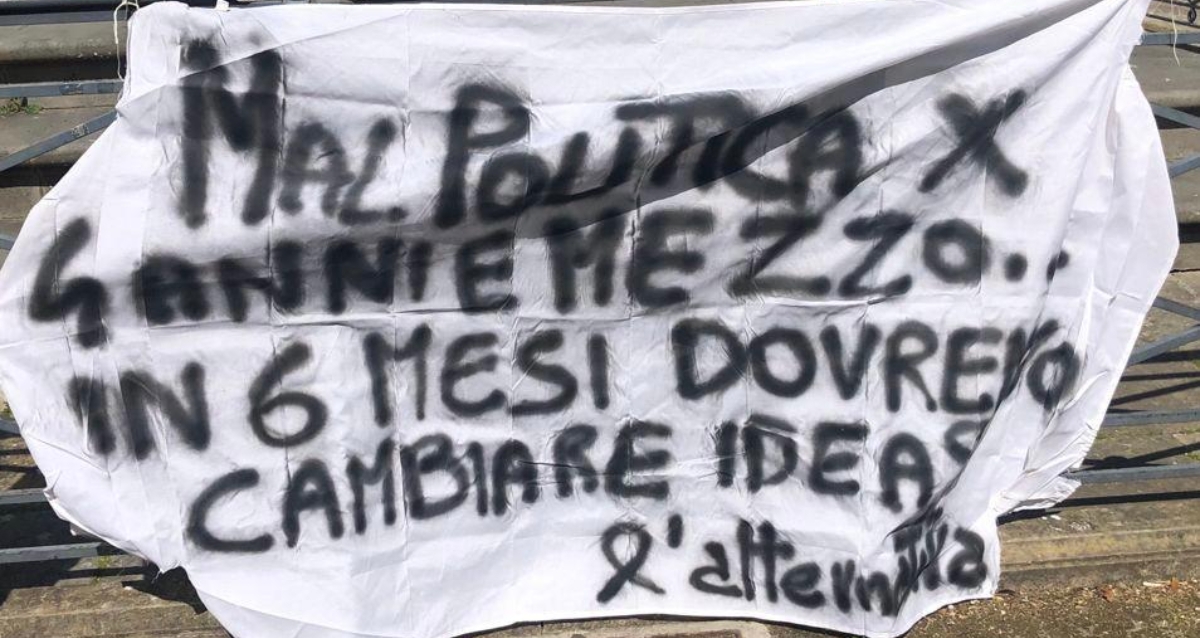 MAL POLITICA X
4 ANNI E MEZZO..
IN 6 MESI DOVREMO
CAMBIARE IDEA?
l'alternativa